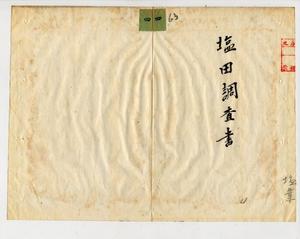 塩田調査書
四四
63
塩業